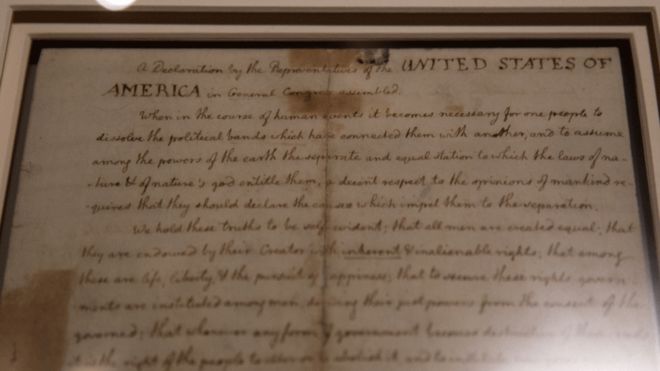 A Declaration by the Representatives of the UNITED STATES OF
AMERICA in General Congress assembled.
When in the course of human events it becomes necessary for one people to
dissolve the political bands which have connected them with another, and to assume
among the powers of the earth the separate and equal station to which the laws of na-
-ture & of nature's god entitle them, a decent respect to the opinions of mankind re-
-quires that they should declare the causes which impel them to the separation.
We hold these truths to be self-evident; that all men are created equal; that
they are endowed by their Creator with inherent & inalienable rights; that among
these are life, liberty, & the pursuit of happiness; that to secure these rights govern-
-ments are instituted among men, deriving their just powers from the consent of the
governed; that whenever any form of government becomes destructive of these ends
it is the right of the people to alter or to abolish it, and to institute